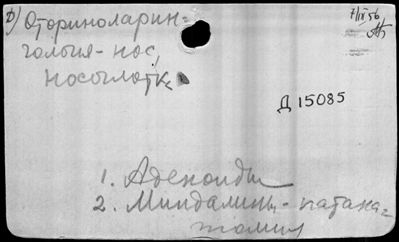 D) Оторинолярин-
голыгия - нос,
носоглотк
7/IX 56
Д 15085
1. Аденоиды
2. Миндалины - патана-
томия